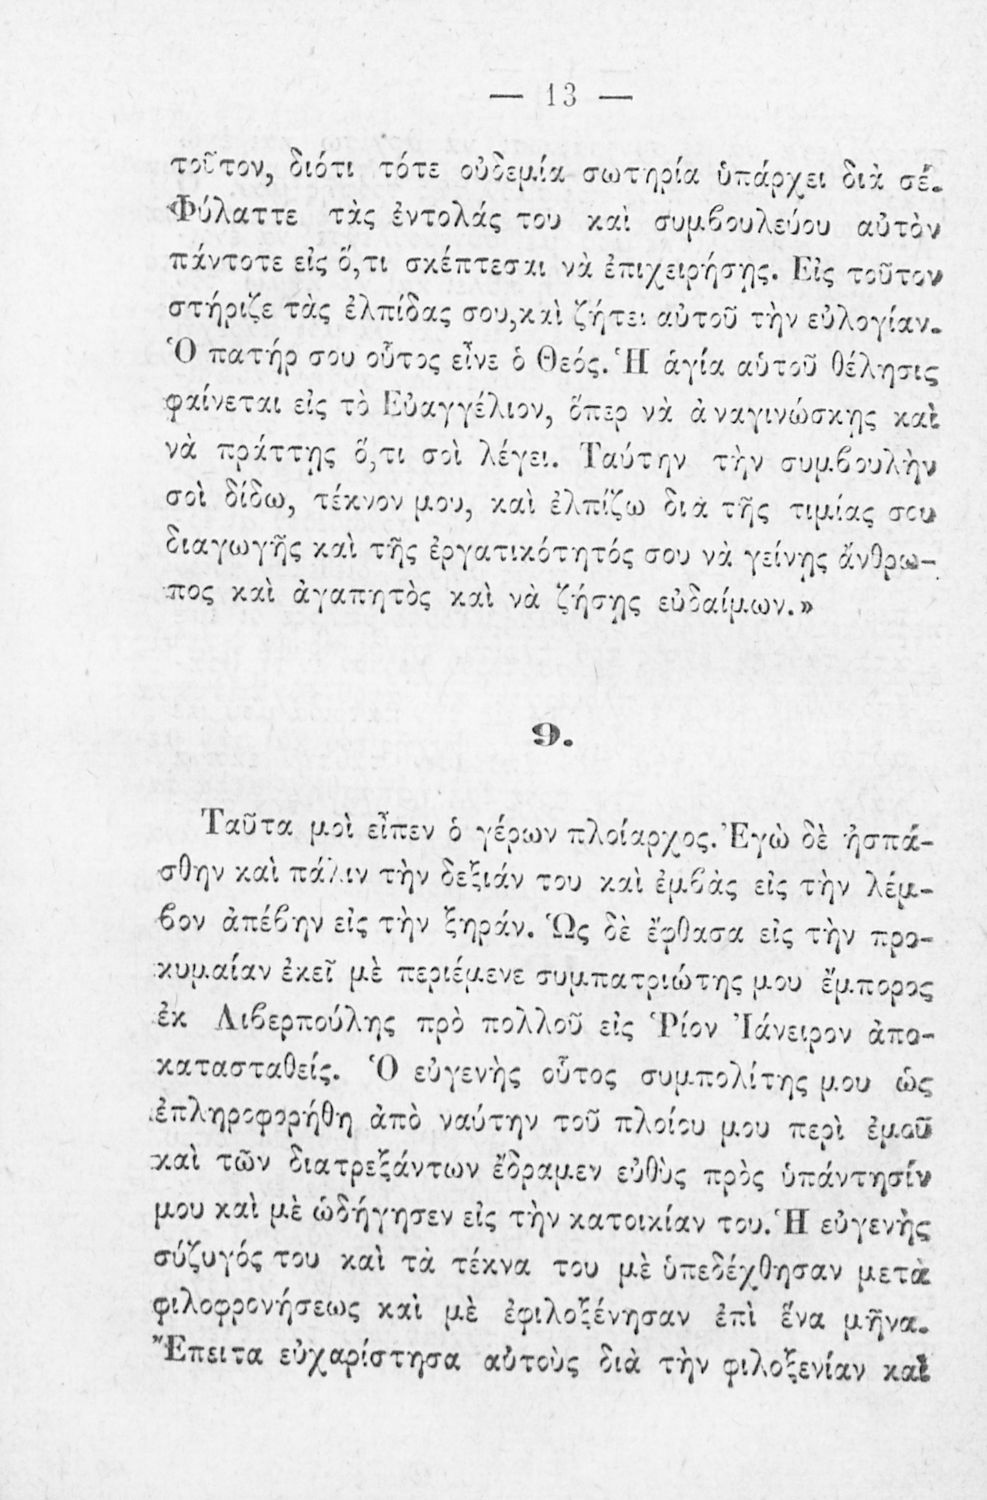 — 13 —
τοῦτον, διότι τότε οὐδεμία σωτηρία ὑπάρχει διὰ σέ.
Φύλαττε τὰς ἐντολάς του καὶ συμβουλεύου αὐτὸν
πάντοτε εἰς ὅ,τι σκέπτεσαι νὰ ἐπιχειρήσῃς. Εἰς τοῦτον
στήριζε τὰς ἐλπίδας σου,καὶ ζήτει αὐτοῦ τὴν εὐλογίαν.
Ὁ πατήρ σου οὗτος εἶνε ὁ Θεός. Ἡ ἁγία αὑτοῦ θέλησις
φαίνεται εἰς τὸ Εὐαγγέλιον, ὅπερ νὰ ἀναγινώσκῃς καὶ
νὰ πράττῃς ὅ,τι σοὶ λέγει. Ταύτην τὴν συμβουλὴν
σοὶ δίδω, τέκνον μου, καὶ ἐλπίζω διὰ τῆς τιμίας σου
διαγωγῆς καὶ τῆς ἐργατικότητός σου νὰ γείνῃς ἄνθρω-
πος καὶ ἀγαπητὸς καὶ νὰ ζήσῃς εὐδαίμων.»
9.
Ταῦτα μοὶ εἶπεν ὁ γέρων πλοίαρχος. Ἐγὼ δὲ ἠσπά-
σθην καὶ πάλιν τὴν δεξιάν του καὶ ἐμβὰς εἰς τὴν λέμ-
βον ἀπέβην εἰς τὴν ξηράν. Ὡς δὲ ἔφθασα εἰς τὴν προ-
κυμαίαν ἐκεῖ μὲ περιέμενε συμπατριώτης μου ἔμπορος
ἐκ Λιβερπούλης πρὸ πολλοῦ εἰς Ῥίον Ἰάνειρον ἀπο-
κατασταθείς. Ὁ εὐγενὴς οὗτος συμπολίτης μου ὡς
ἐπληροφορήθη ἀπὸ ναύτην τοῦ πλοίου μου περὶ ἐμοῦ
καὶ τῶν διατρεξάντων ἔδραμεν εὐθὺς πρὸς ὑπάντησίν
μου καὶ μὲ ὡδήγησεν εἰς τὴν κατοικίαν του. Ἡ εὐγενὴς
σύζυγός του καὶ τὰ τέκνα του μὲ ὑπεδέχθησαν μετὰ
φιλοφρονήσεως καὶ μὲ ἐφιλοξένησαν ἐπὶ ἕνα μῆνα.
Ἔπειτα εὐχαρίστησα αὐτοὺς διὰ τὴν φιλοξενίαν καὶ